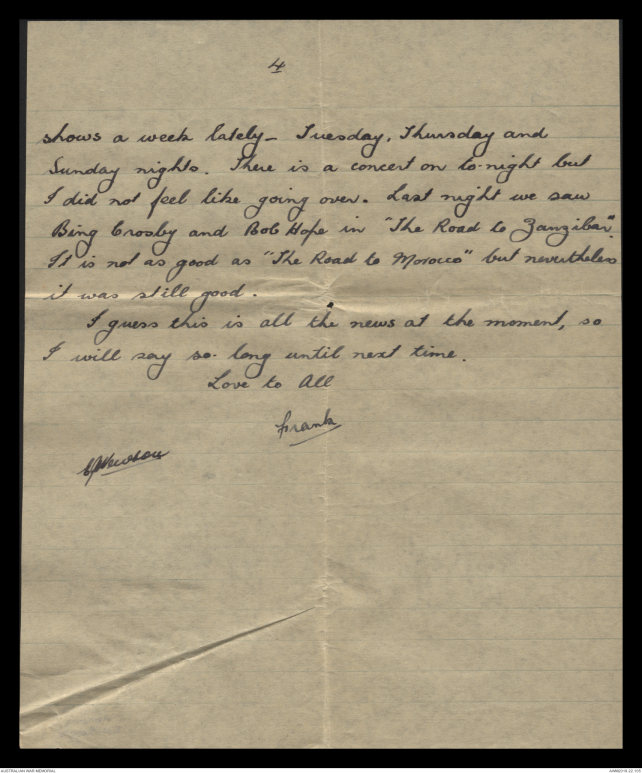 4
shows a week lately - Tuesday, Thursday and
Sunday nights. There is a concert on to-night but
I did not feel like going over. Last night we saw
Bing Crosby and Bob Hope in "The Road to Zanzibar".
It is not as good as "The Road to Morocco" but nevertheless
it was still good.
I guess this is all the news at the moment, so
I will say so-long until next time.
Love to All
Frank
AUSTRALIAN WAR MEMORIAL